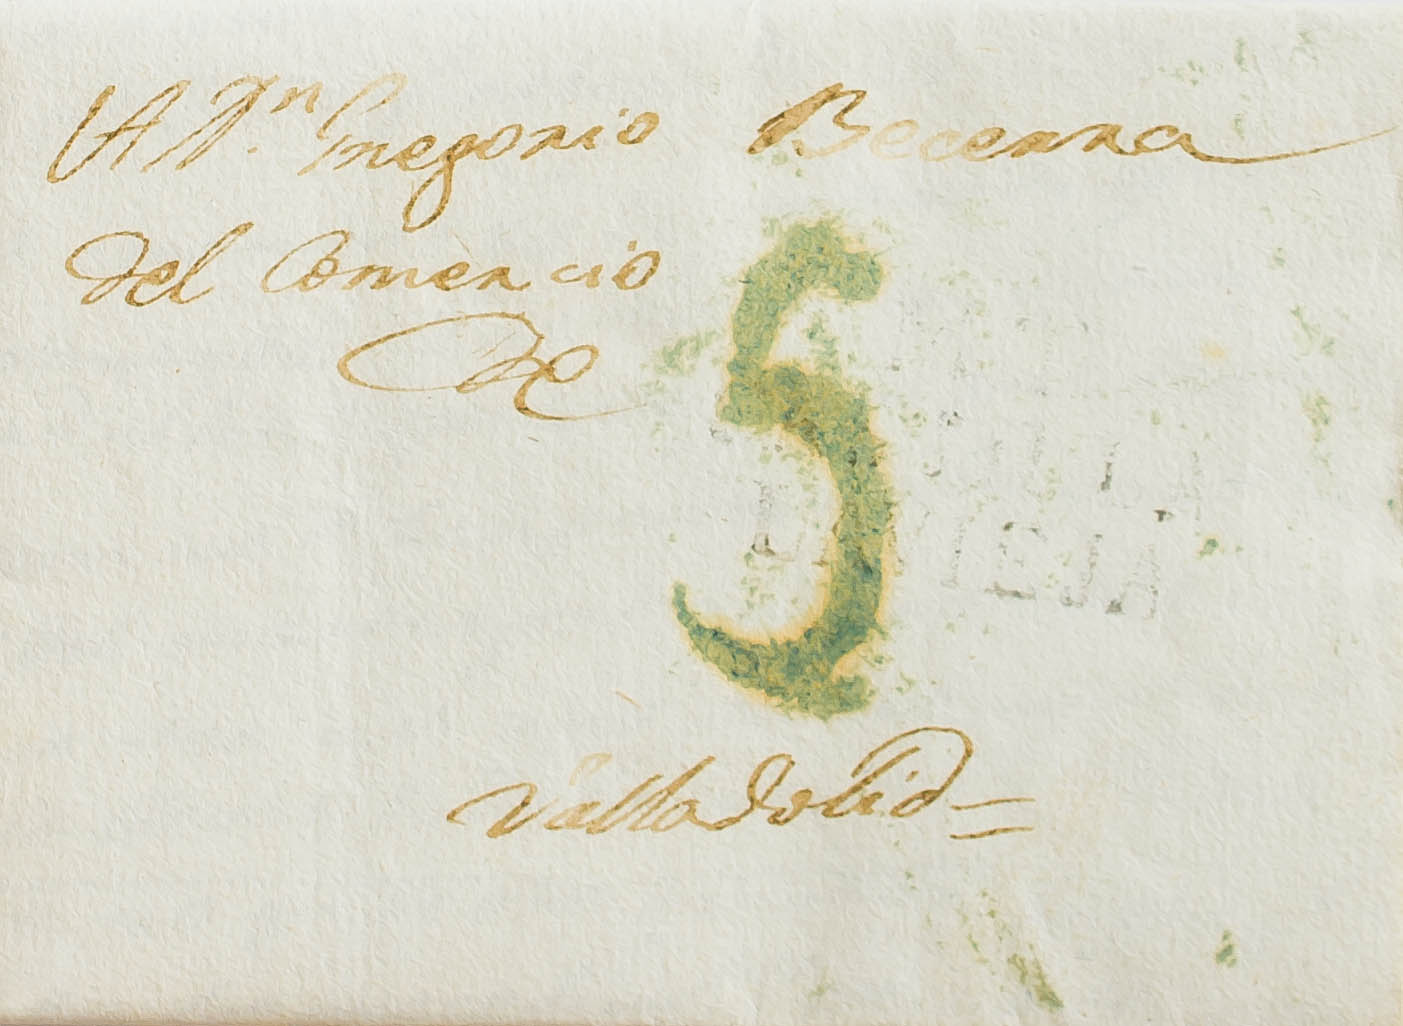 A Dn. Gregorio Becerra
del Comercio
de
5
Valladolid =